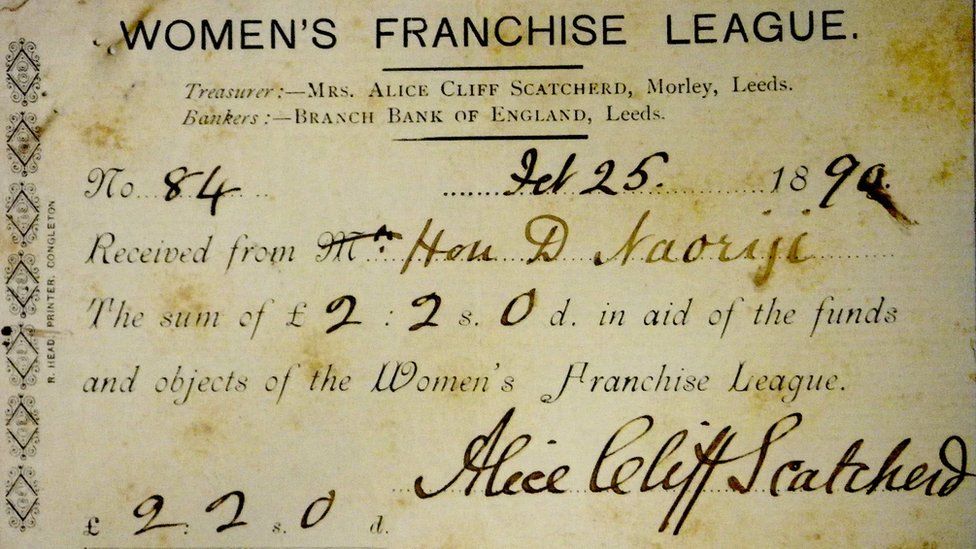 WOMEN'S FRANCHISE LEAGUE.
Treasurer:—MRS. ALICE CLIFF SCATCHERD, Morley, Leeds.
Bankers:—BRANCH BANK OF ENGLAND, Leeds.
No. 84 Feb 25. 1890.
Received from Mr. Hon D Naoriji
The sum of £ 2 : 2 s. 0 d. in aid of the funds
and objects of the Women's Franchise League.
Alice Cliff Scatcherd
£ 2 : 2 s. 0 d.
R. HEAD, PRINTER, CONGLETON